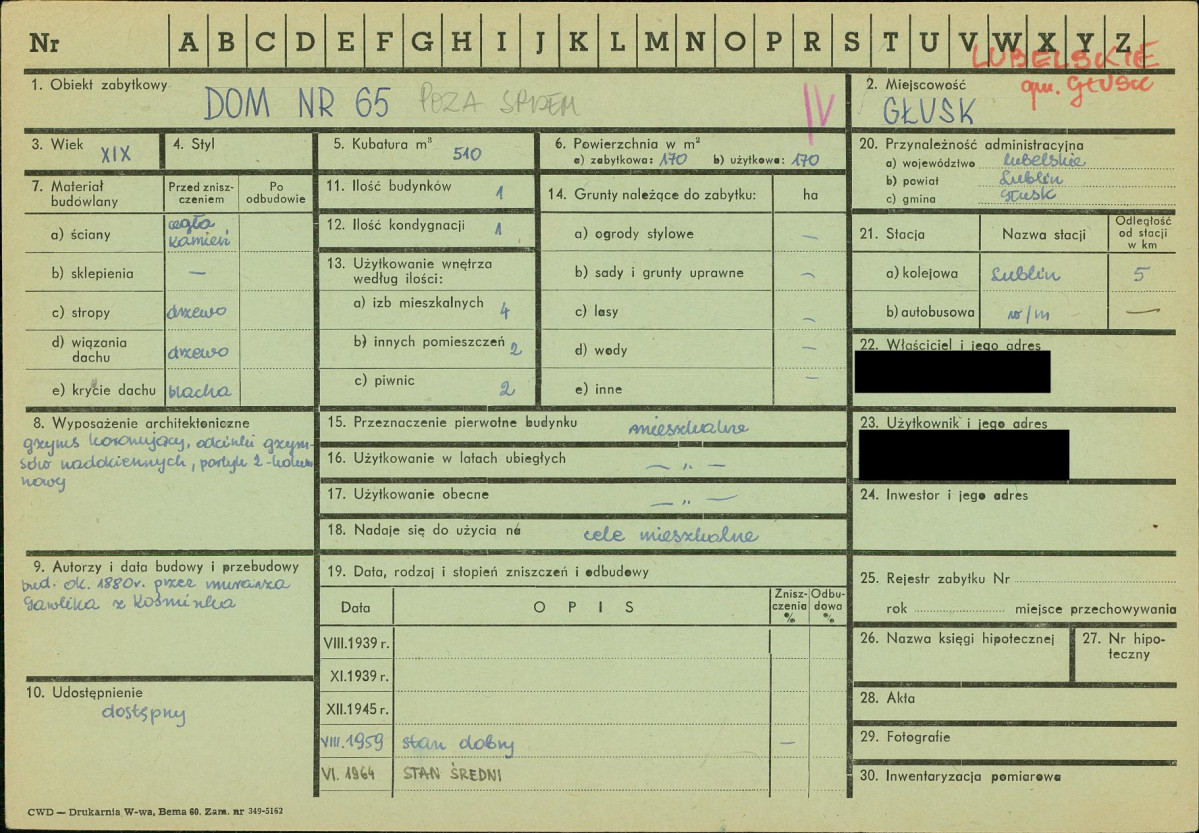 Nr A B C D E F G H I J K L M N O P R S T U V W X Y Z
LUBELSKIE
gm. GŁUSK
1. Obiekt zabytkowy
DOM NR 65 POZA SPISEM
IV
2. Miejscowość
GŁUSK
3. Wiek XIX
4. Styl
5. Kubatura m³ 510
6. Powierzchnia w m²
a) zabytkowa: 170 b) użytkowa: 170
20. Przynależność administracyjna
a) województwo lubelskie
b) powiat Lublin
c) gmina Głusk
7. Materiał budowlany
Przed znisz-
czeniem
Po
odbudowie
a) ściany cegła
kamień
b) sklepienia —
c) stropy drzewo
d) wiązania
dachu drzewo
e) krycie dachu blacha
11. Ilość budynków 1
12. Ilość kondygnacji 1
13. Użytkowanie wnętrza
według ilości:
a) izb mieszkalnych 4
b) innych pomieszczeń 2
c) piwnic 2
14. Grunty należące do zabytku: ha
a) ogrody stylowe —
b) sady i grunty uprawne —
c) lasy —
d) wody —
e) inne —
21. Stacja Nazwa stacji
Odległość
od stacji
w km
a) kolejowa Lublin 5
b) autobusowa w/m —
22. Właściciel i jego adres
23. Użytkownik i jego adres
24. Inwestor i jego adres
8. Wyposażenie architektoniczne
gzyms koronujący, odcinki gzym-
sów nadokiennych, portyk 2-kolum
nowy
15. Przeznaczenie pierwotne budynku mieszkalne
16. Użytkowanie w latach ubiegłych — „ —
17. Użytkowanie obecne — „ —
18. Nadaje się do użycia na cele mieszkalne
9. Autorzy i data budowy i przebudowy
bud. ok. 1880r. przez murarza
Gawlika z Kośminka
10. Udostępnienie
dostępny
19. Data, rodzaj i stopień zniszczeń i odbudowy
Data OPIS
Znisz-
czenia
%
Odbu-
dowa
%
VIII.1939 r.
XI.1939 r.
XII.1945 r.
VIII.1959 stan dobry —
VI. 1964 STAN ŚREDNI
25. Rejestr zabytku Nr
rok miejsce przechowywania
26. Nazwa księgi hipotecznej
27. Nr hipo-
teczny
28. Akta
29. Fotografie
30. Inwentaryzacja pomiarowa
CWD — Drukarnia W-wa, Bema 60. Zam. nr 349-5162